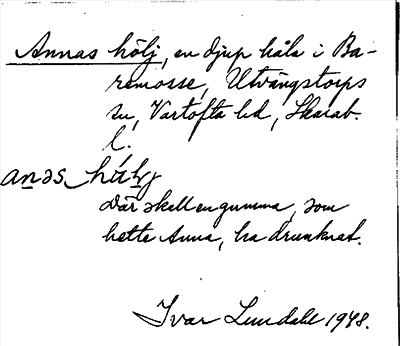 Annas hölj, en djup håla i Ba-
remosse, Utvängstorps
sn, Vartofta hd, Skarab.
l.
anəs hölj
Där skall en gumma, som
hette Anna, ha drunknat.
Ivar Lundahl 1948.